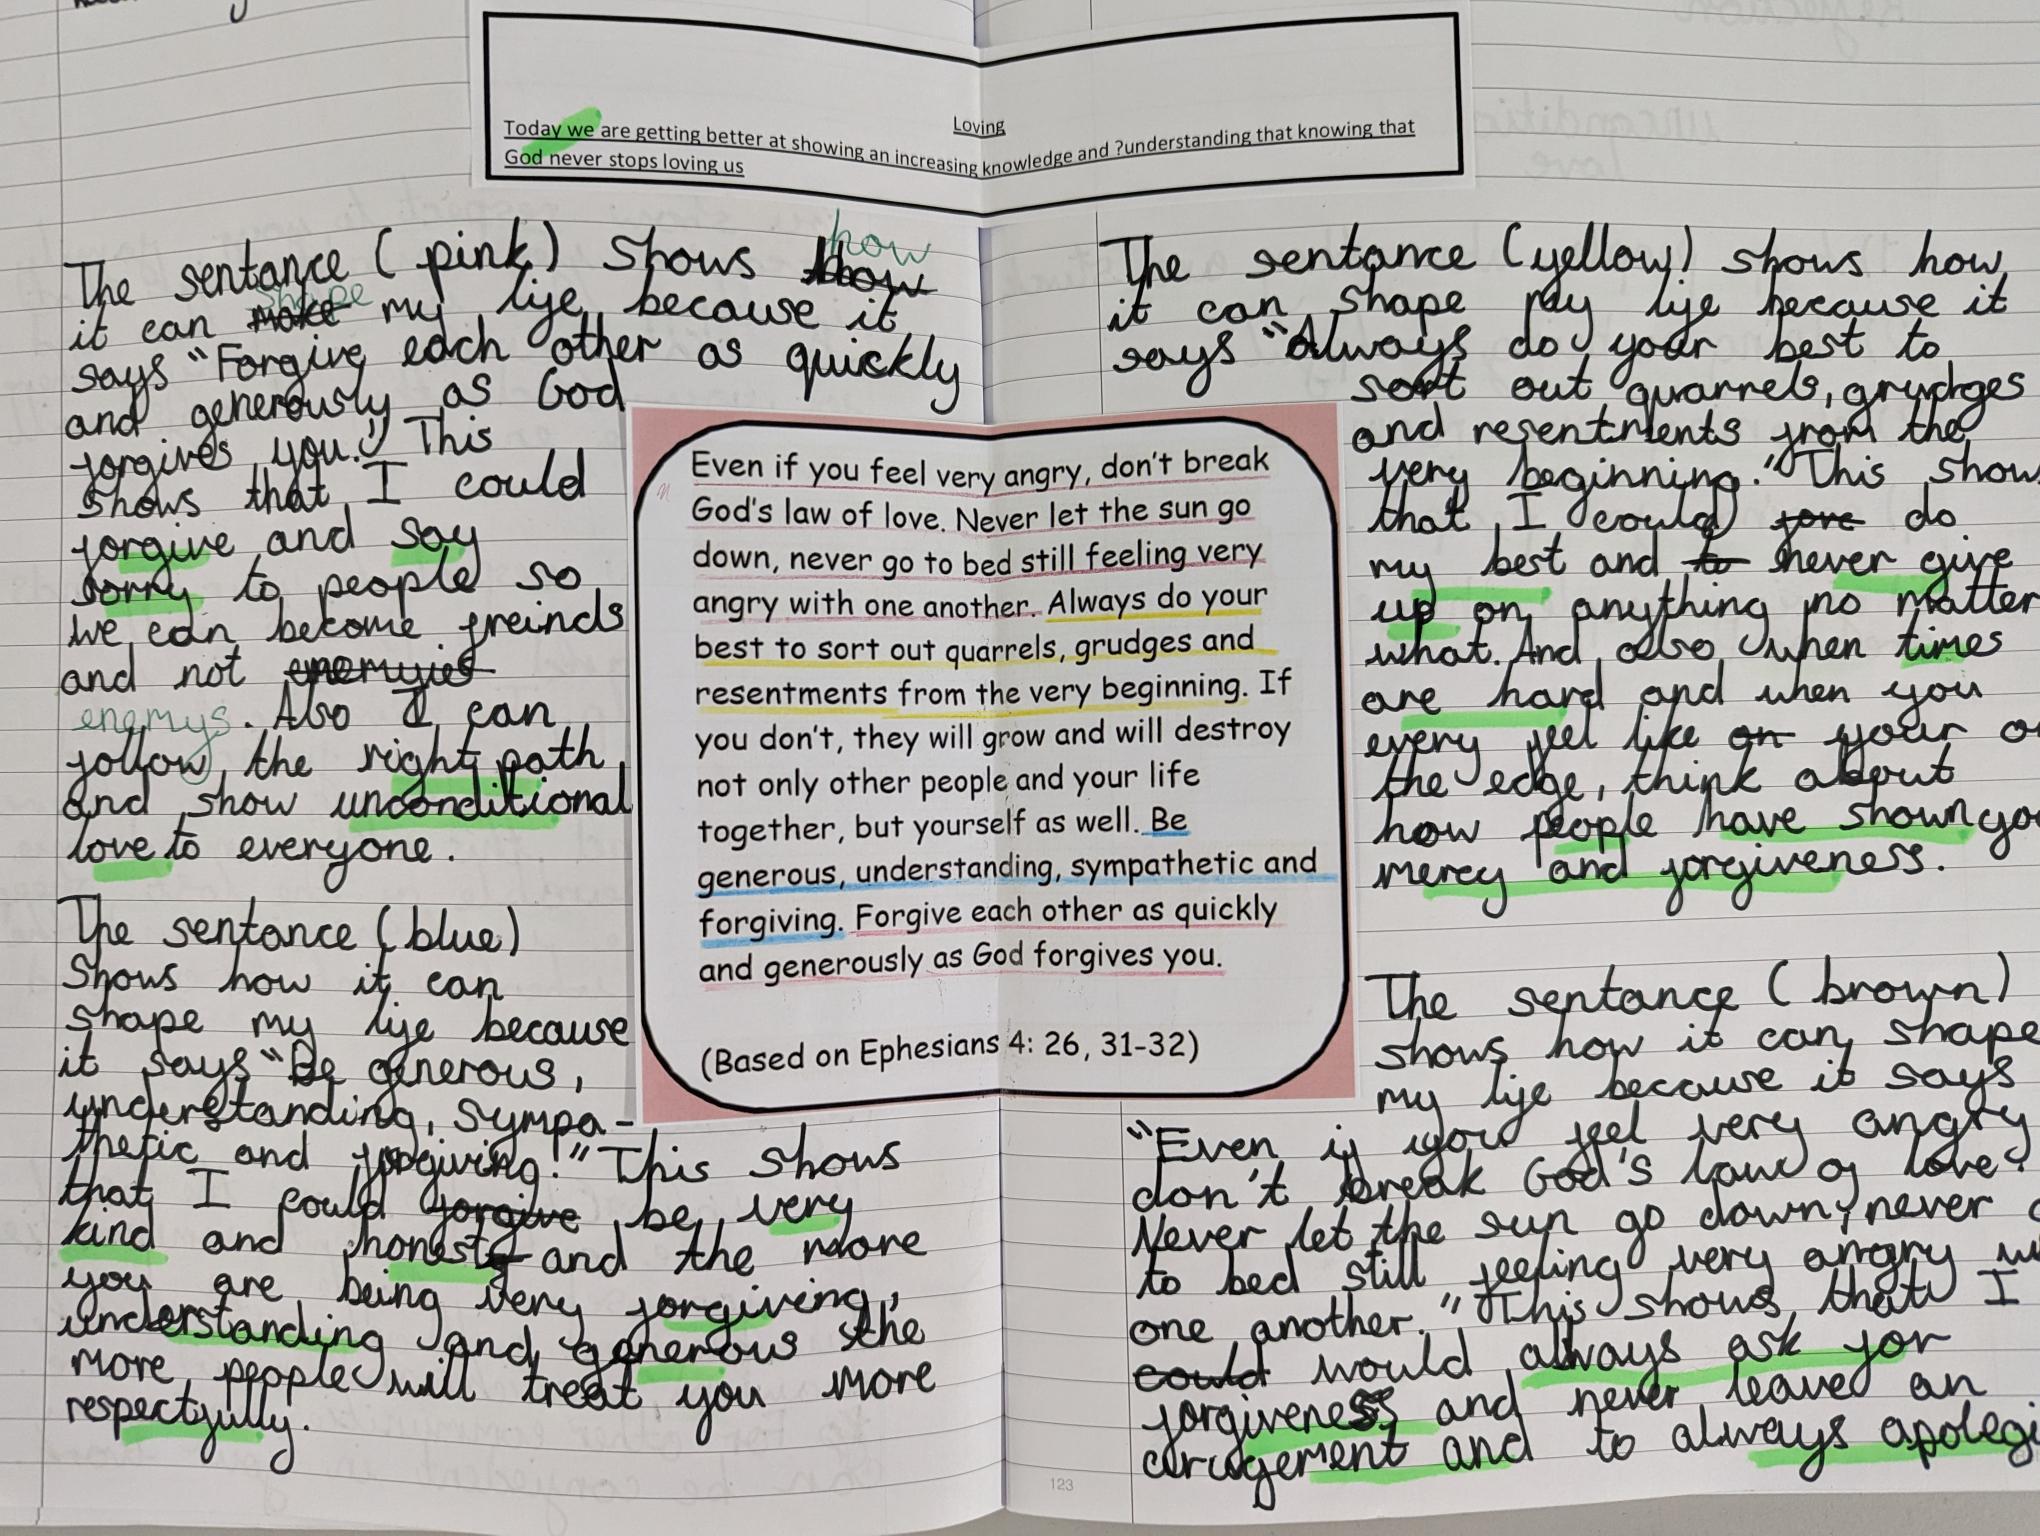 Loving
Today we are getting better at showing an increasing knowledge and ?understanding that knowing that
God never stops loving us
The sentance (pink) shows how
it can shape my life because it
says "Forgive each other as quickly
and generously as God
forgives you." This
shows that I could
forgive and say
sorry to people so
we can become freinds
and not enemyies
enemys. Also I can
follow the right path
and show unconditional
love to everyone.
The sentance (blue)
shows how it can
shape my life because
it says "Be generous,
understanding, sympa-
thetic and forgiving." This shows
that I could forgive be very
kind and honest and the more
you are being very forgiving,
understanding and generous the
more people will treat you more
respectfully.
Even if you feel very angry, don't break
God's law of love. Never let the sun go
down, never go to bed still feeling very
angry with one another. Always do your
best to sort out quarrels, grudges and
resentments from the very beginning. If
you don't, they will grow and will destroy
not only other people and your life
together, but yourself as well. Be
generous, understanding, sympathetic and
forgiving. Forgive each other as quickly
and generously as God forgives you.
(Based on Ephesians 4: 26, 31-32)
The sentance (yellow) shows how
it can shape my life because it
says "Always do your best to
sort out quarrels, grudges
and resentments from the
very beginning." This show
that I could do
my best and to never give
up on anything no matter
what. And also when times
are hard and when you
every feel like on your
the edge, think about
how people have shown you
mercy and forgiveness.
The sentance (brown)
shows how it can shape
my life because it says
"Even if you feel very angry
don't break God's law of love.
Never let the sun go down, never
to bed still feeling very angry
one another." This shows that I
could would always ask for
forgiveness and never leave an
arugement and to always apologi
123